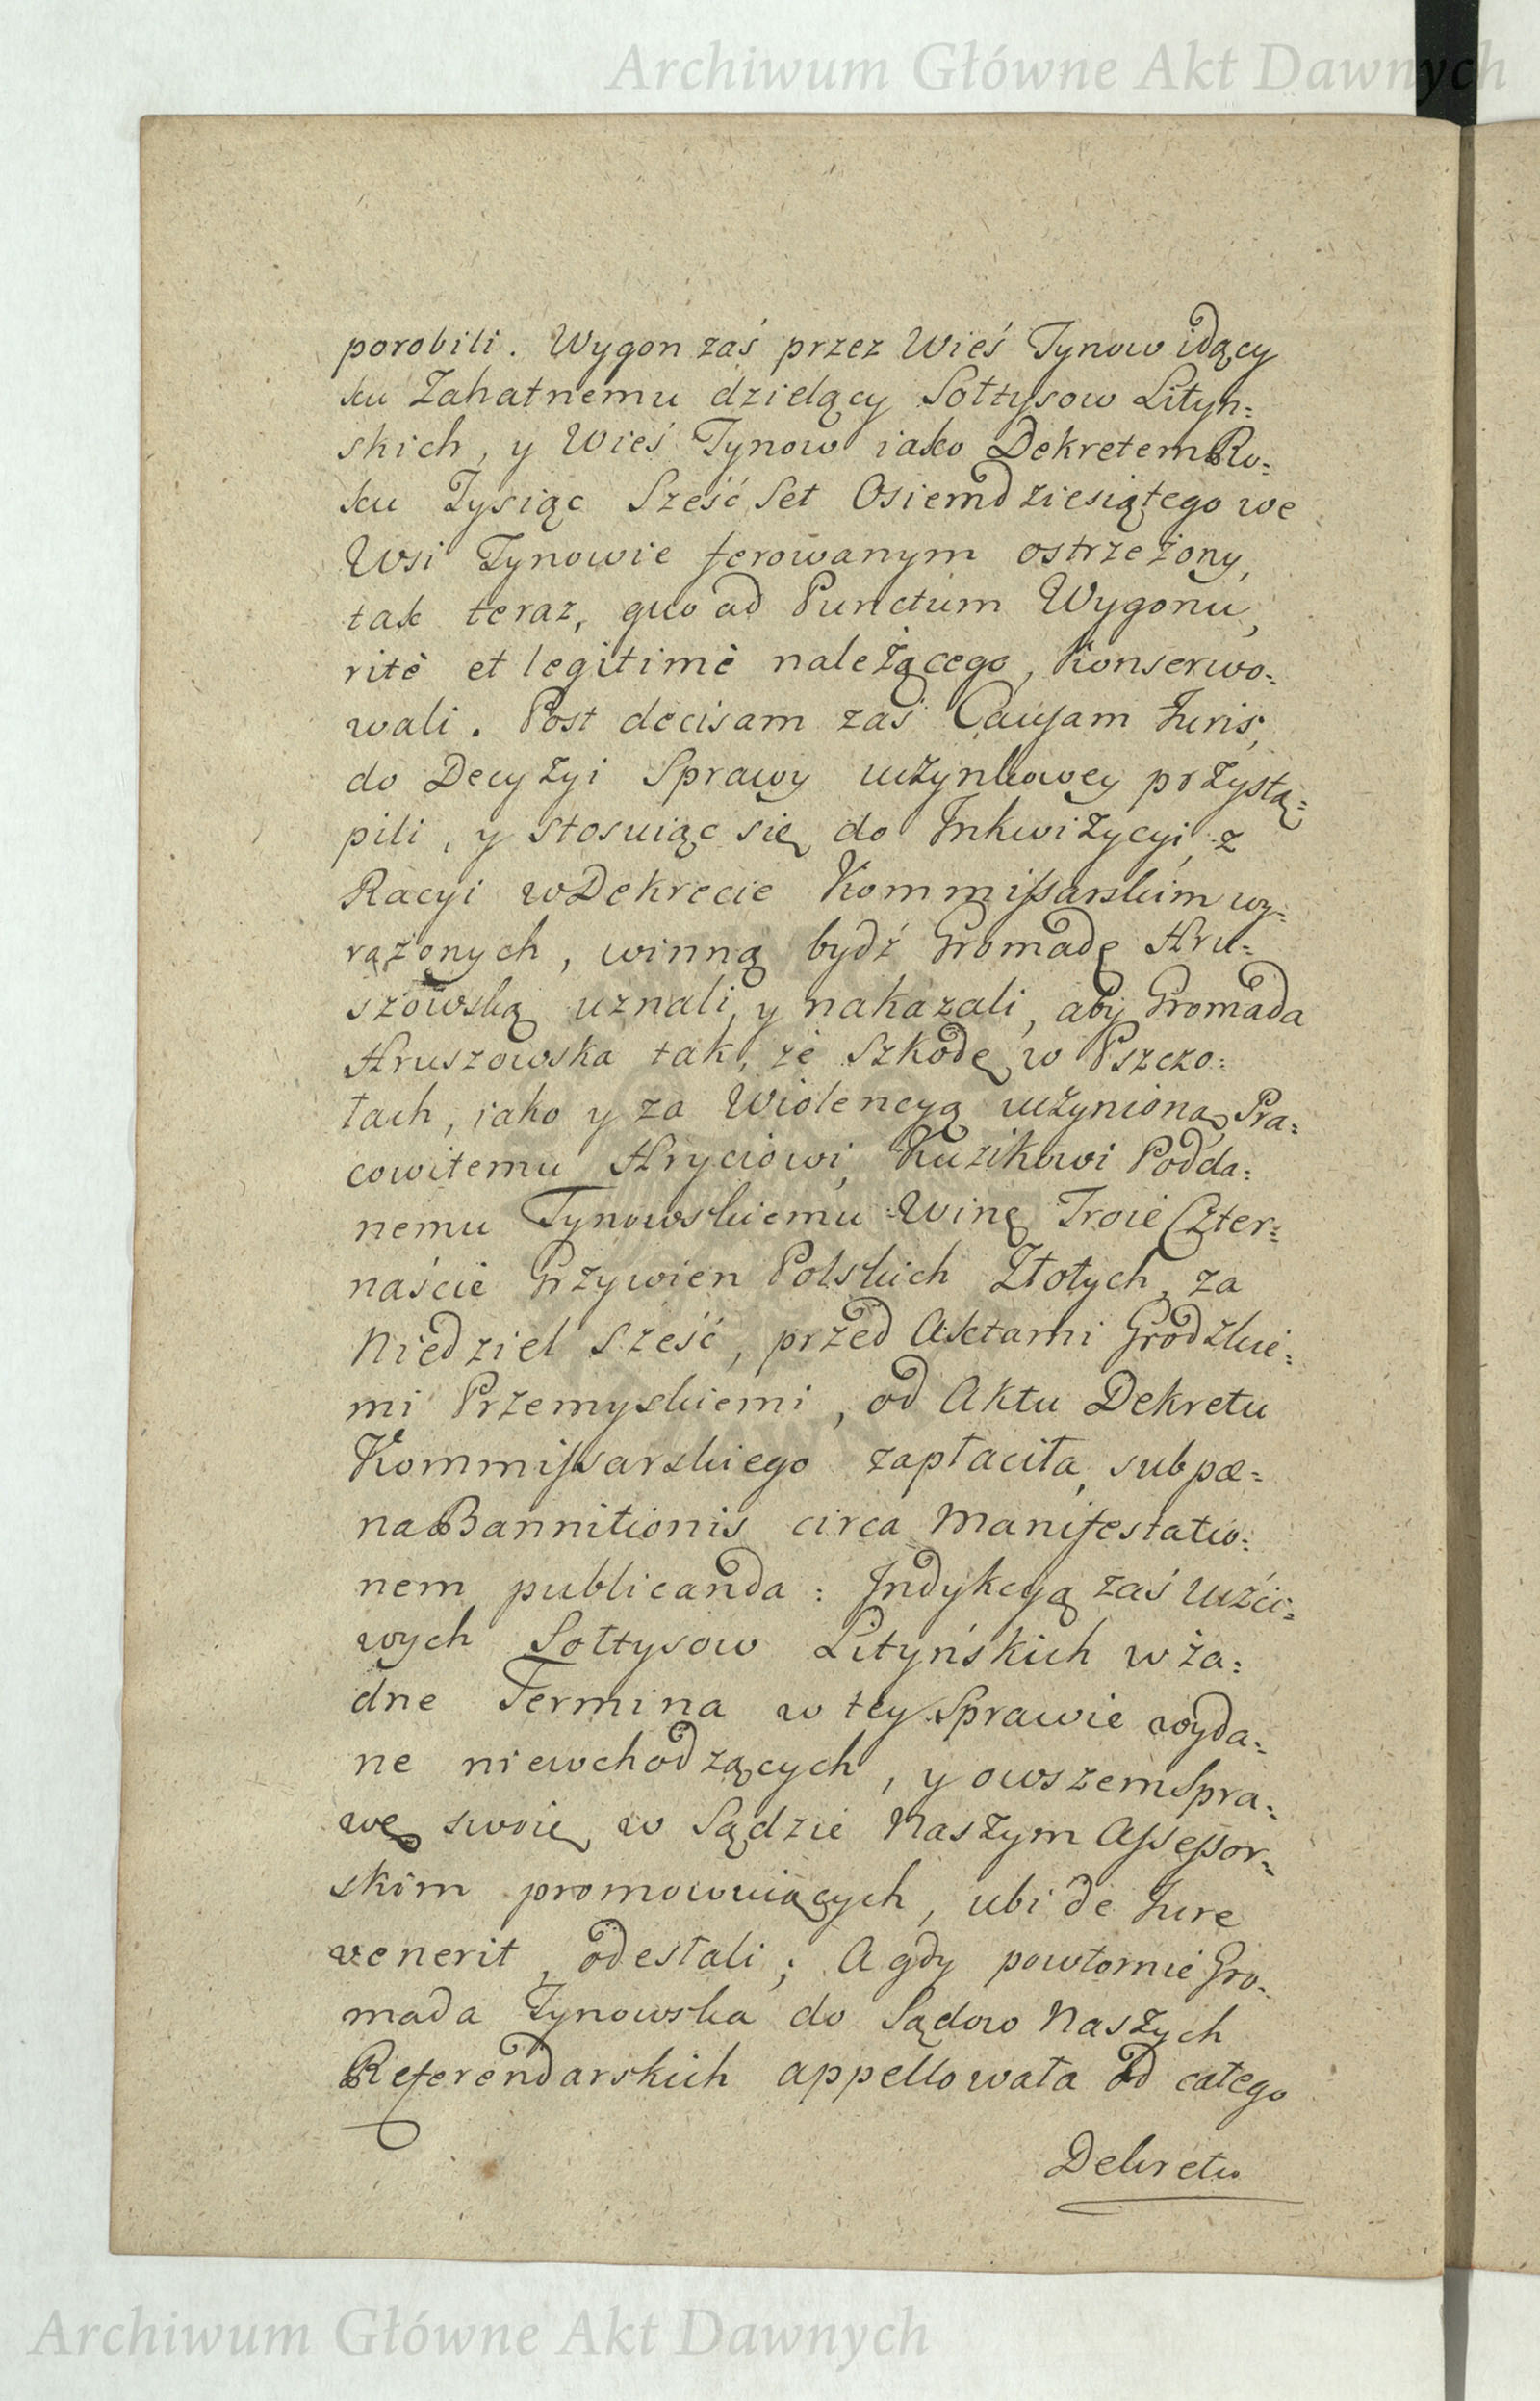 Archiwum Główne Akt Dawnych
porobili. Wygon zaś przez Wieś Tynow idący
ku Zahatnemu dzielący Sołtysow Lityn=
skich, y Wieś Tynow iako Dekretem Ro=
ku Tysiąc Sześć Set Osiemdziesiątego we
Wsi Tynowie ferowanym ostrzeżony,
tak teraz, quo ad Punctum Wygonu,
ritè et legitimè należącego, konserwo=
wali. Post decisam zaś Causam Juris,
do Decyzyi Sprawy uczynkowey przystą=
pili, y stosuiąc się do Inkwizycyi, z
Racyi w Dekrecie Kommissarskim wy=
rażonych, winną bydź Gromadę Hru=
szowską uznali, y nakazali, aby Gromada
Hruszowska tak, że Szkodę w Pszczo=
łach, iako y za Wiolencyą uczynioną Pra=
cowitemu Hryciowi, Kuzikowi Podda=
nemu Tynowskiemu Winę Troie Czter=
naście Grzywien Polskich Złotych, za
Niedziel sześć, przed Aktami Grodzkie=
mi Przemyskiemi, od Aktu Dekretu
Kommissarskiego zapłaciła, sub pæ=
na Bannitionis circa Manifestatio=
nem publicanda: Indykcyą zaś Uczci=
wych Sołtysow Lityńskich w ża=
dne Termina w tey Sprawie wyda=
ne niewchodzących, y owszem Spra=
wę swoię w Sądzie Naszym Assessor=
skim promowuiących, ubi de Jure
venerit, odesłali; A gdy powtornie Gro=
mada Tynowska do Sądow Naszych
Referendarskich appellowała od całego
Dekretu
Archiwum Główne Akt Dawnych